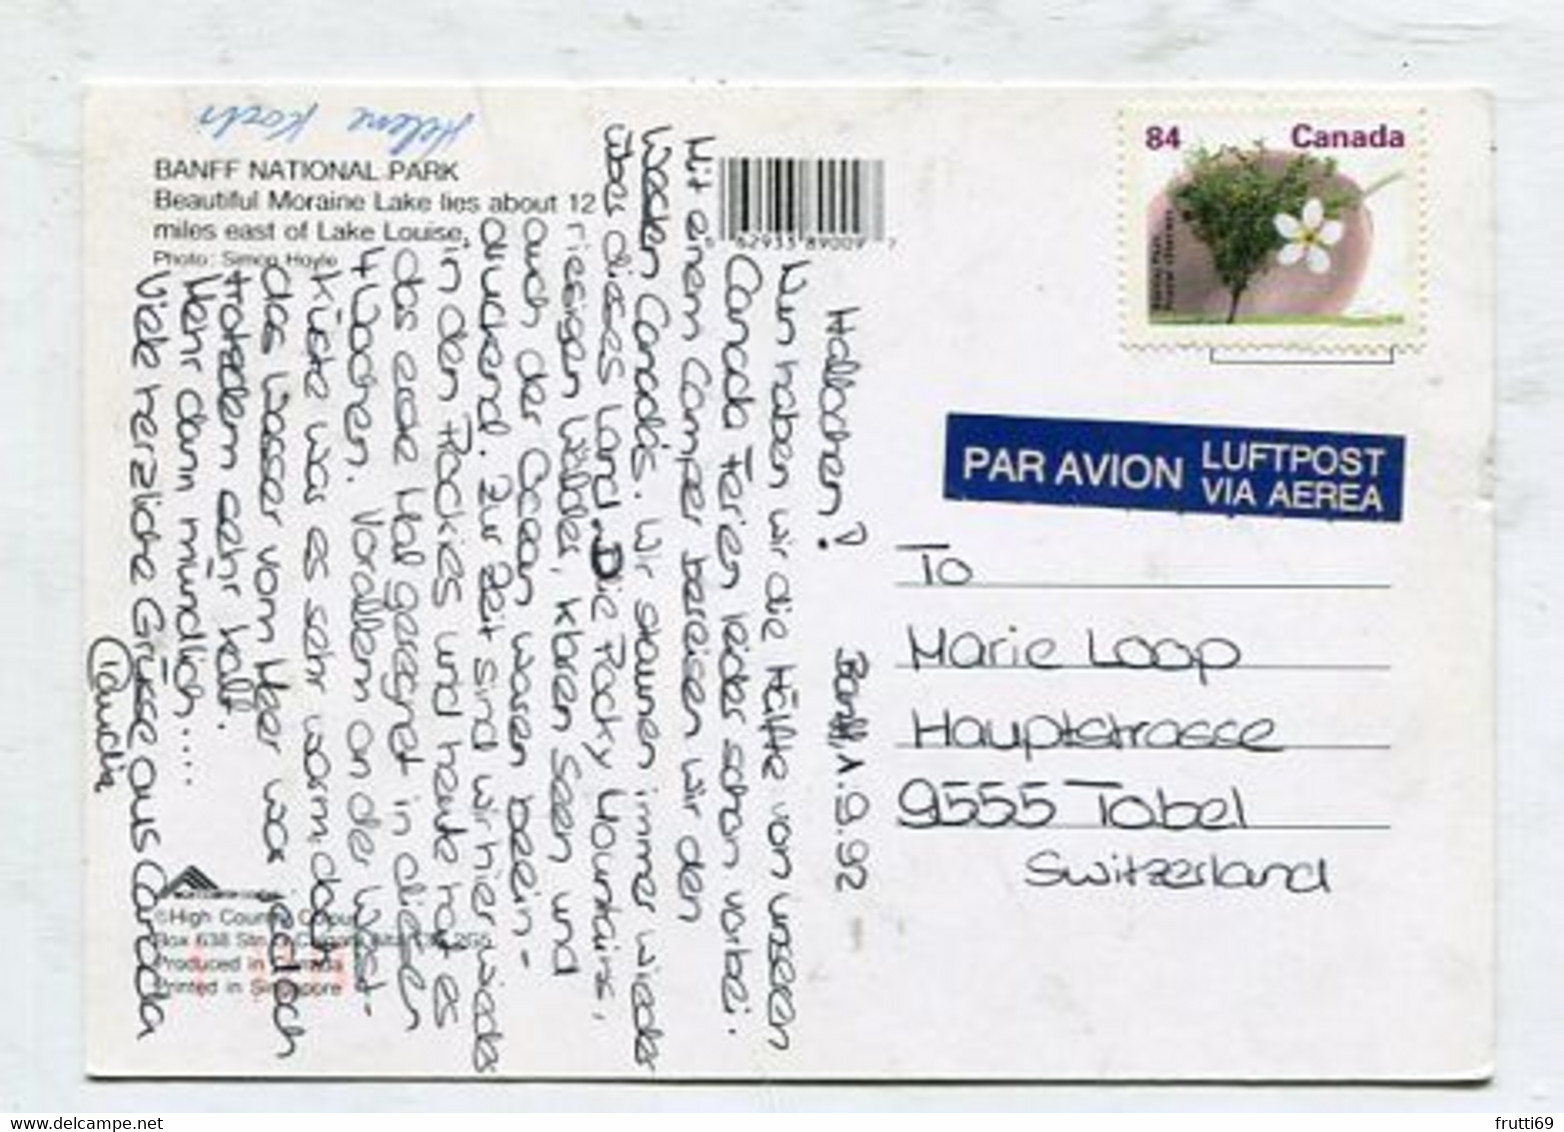 Helene Koch
BANFF NATIONAL PARK
Beautiful Moraine Lake lies about 12
miles east of Lake Louise.
Photo: Simon Hoyle
84 Canada
PAR AVION
LUFTPOST
VIA AEREA
To
Marie Loop
Hauptstrasse
9555 Tobel
Switzerland
Banff, 1.9.92
Hallöchen!
Nun haben wir die Hälfte von unseren
Canada Ferien leider schon vorbei.
Mit einem Camper bereisen wir den
Westen Canada's. Wir staunen immer wieder
über dieses Land. Die Rocky Mountains,
riesigen Wälder, klaren Seen und
auch der Ocean waren beein-
druckend. Zur Zeit sind wir hier wieder
in den Rockies und heute hat es
das erste Mal geregnet in diesen
4 Wochen. Vorallem an der West-
küste war es sehr warm, doch
das Wasser vom Meer war jedoch
trotzdem sehr kalt.
Mehr dann mündlich....
Viele herzliche Grüsse aus Canada
Claudia
©High Country Colour
Box 638 Stn.
Produced in Canada
Printed in Singapore
frutti69